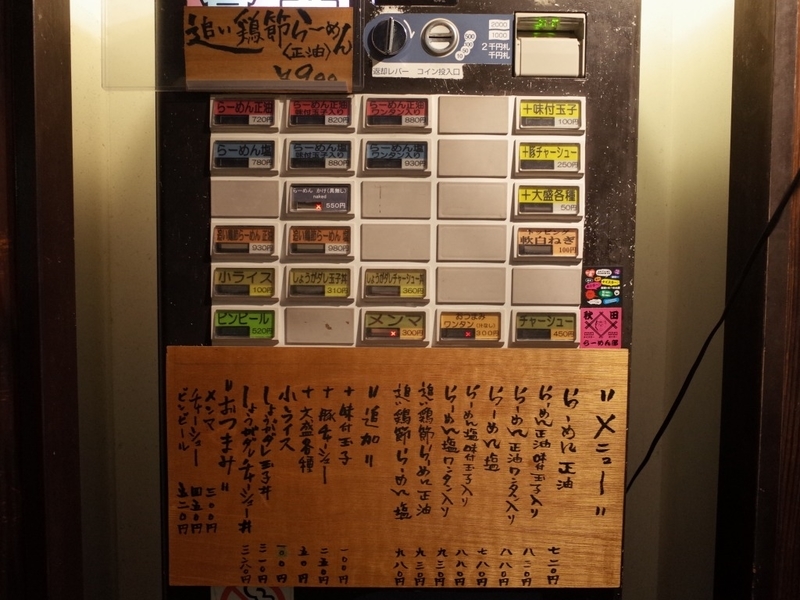 追い鶏節らーめん
(正油)
¥900
返却レバー コイン投入口
2000
1000
2千円札
千円札
500
100
50
10
らーめん正油
720円
らーめん正油
味付玉子入り
820円
らーめん正油
ワンタン入り
880円
+味付玉子
100円
らーめん塩
780円
らーめん塩
味付玉子入り
880円
らーめん塩
ワンタン入り
930円
+豚チャーシュー
250円
らーめん かけ(具無し)
naked
550円
+大盛各種
50円
追い鶏節らーめん 正油
930円
追い鶏節らーめん 塩
980円
トッピング
軟白ねぎ
100円
小ライス
100円
しょうがダレ玉子丼
310円
しょうがダレチャーシュー丼
360円
ビンビール
520円
メンマ
300円
おつまみ
ワンタン(汁なし)
300円
チャーシュー
450円
秋田
らーめん
"メニュー"
らーめん 正油 七二〇円
らーめん 正油味付玉子入り 八二〇円
らーめん 正油ワンタン入り 八八〇円
らーめん 塩 七八〇円
らーめん 塩味付玉子入り 八八〇円
らーめん 塩ワンタン入り 九三〇円
追い鶏節らーめん 正油 九三〇円
追い鶏節らーめん 塩 九八〇円
"追加"
+味付玉子 一〇〇円
+豚チャーシュー 二五〇円
+大盛各種 五〇円
小ライス 一〇〇円
しょうがダレ玉子丼 三一〇円
しょうがダレチャーシュー丼 三六〇円
"おつまみ"
メンマ 三〇〇円
チャーシュー 四五〇円
ビンビール 五二〇円